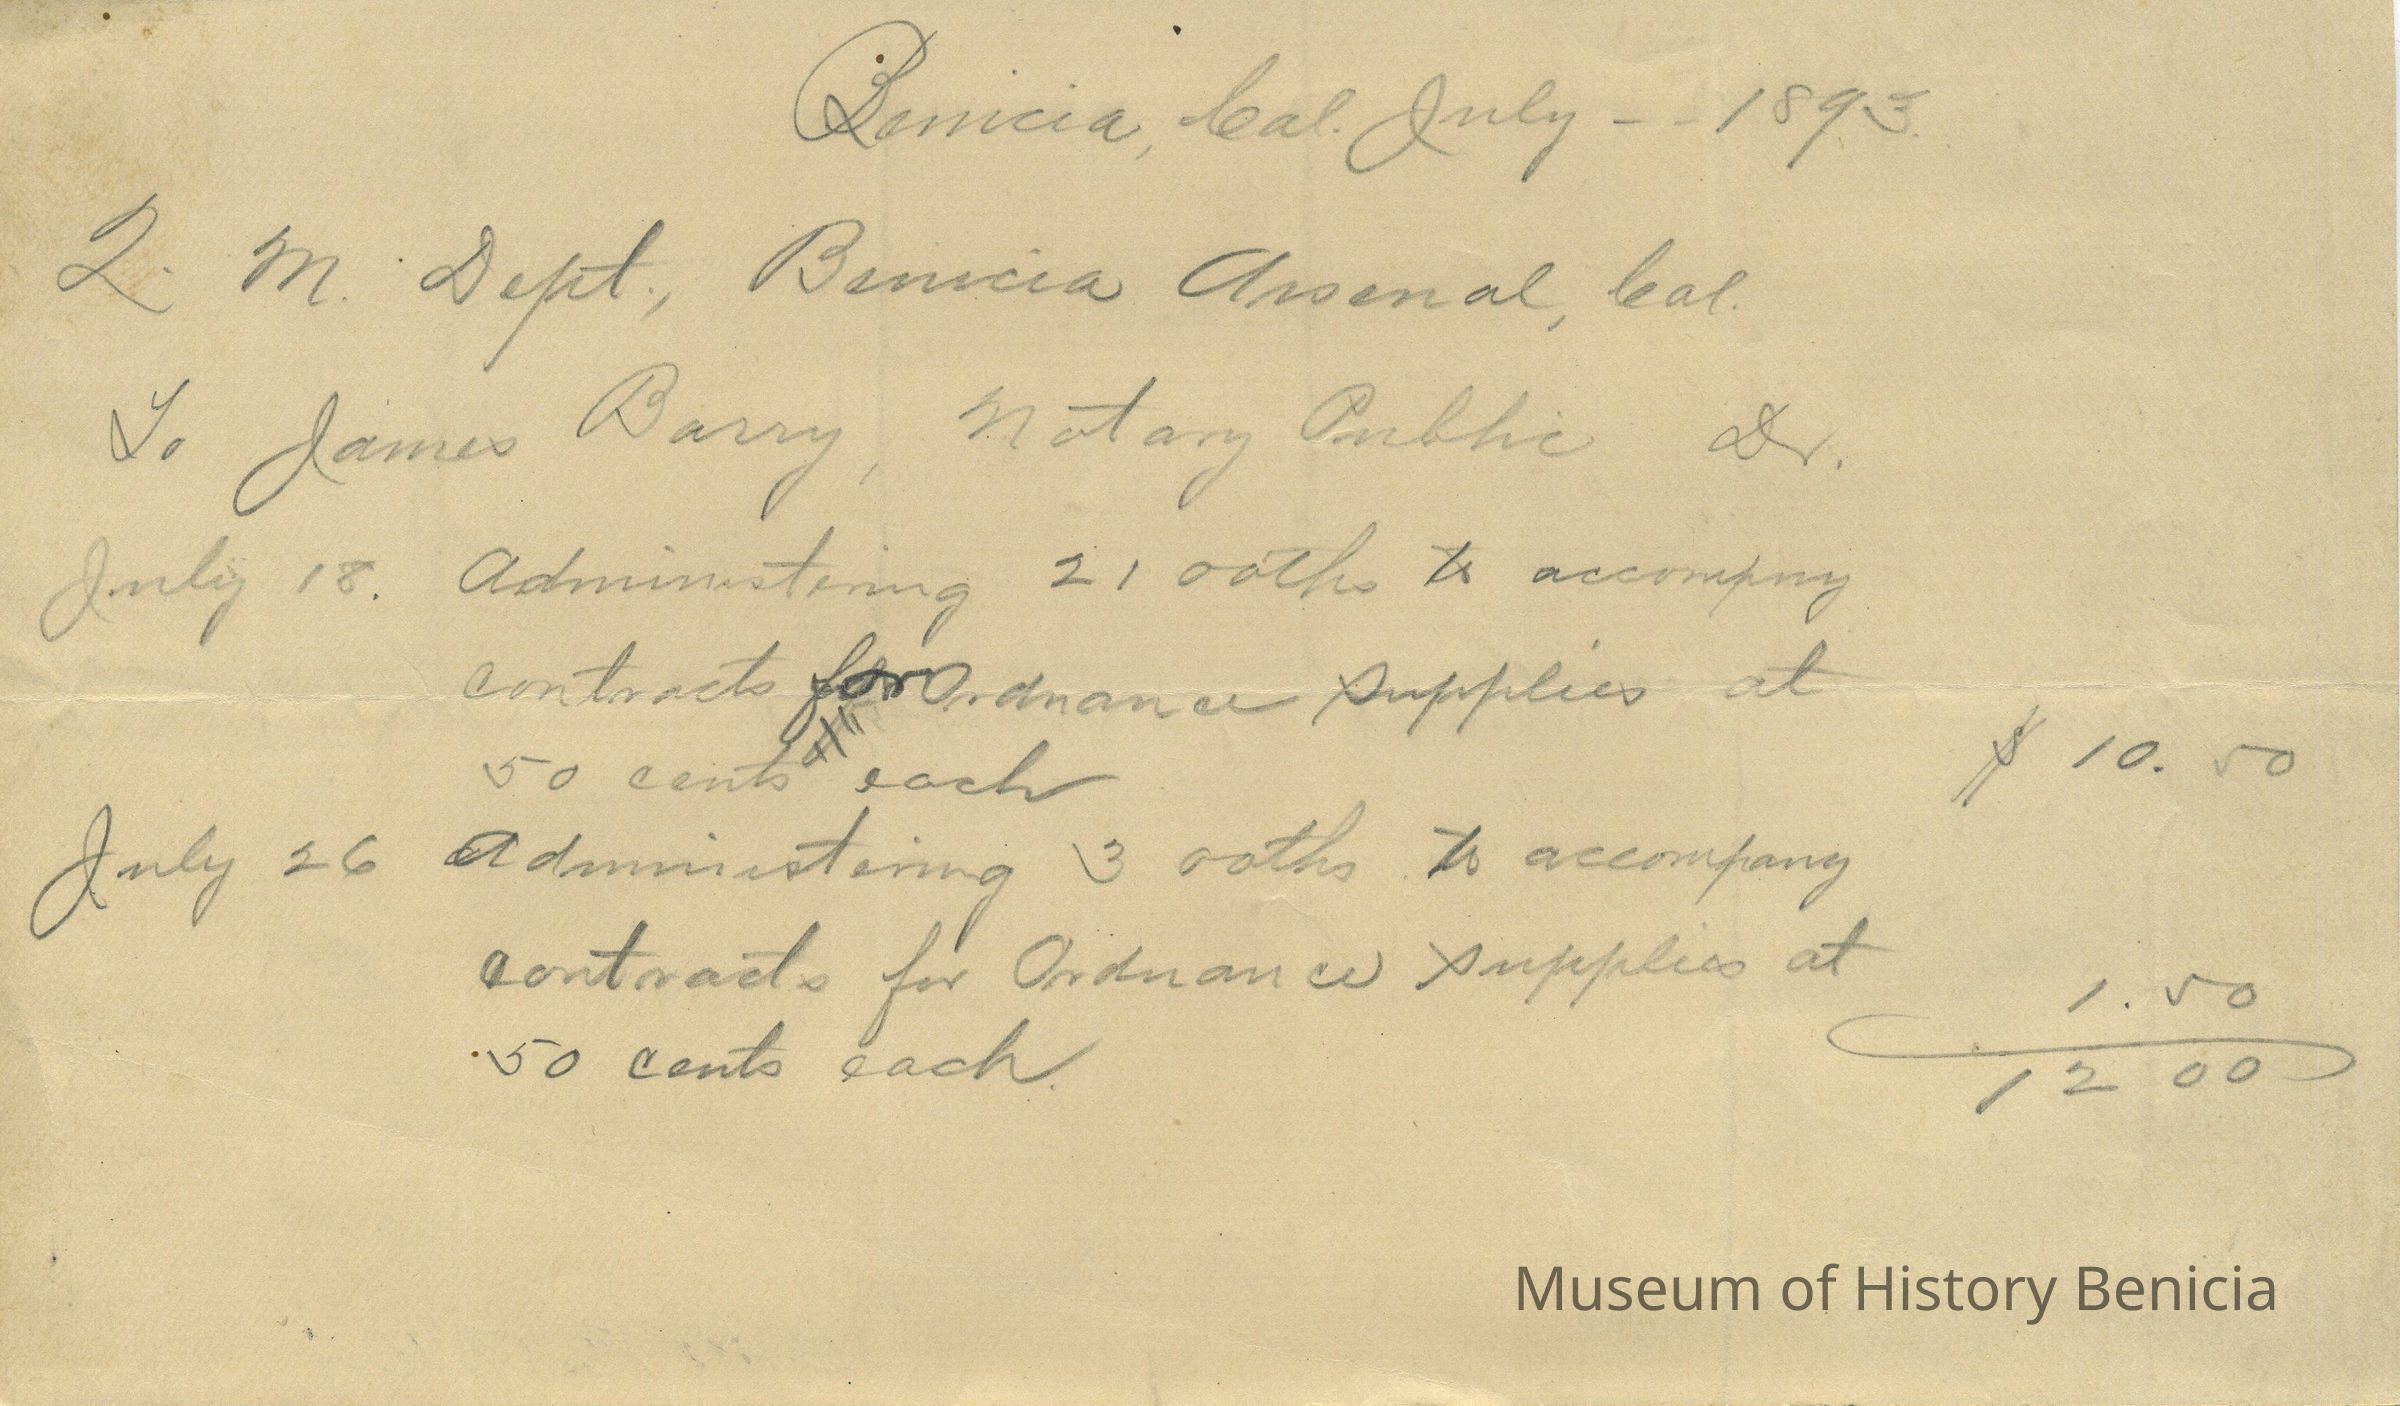 Benicia, Cal. July - - 1893.
Q. M. Dept., Benicia Arsenal, Cal.
To James Barry, Notary Public Dr.
July 18. Administering 21 oaths to accompny
contracts for Ordnance supplies at
50 cents each $ 10.50
July 26 Administering 3 oaths to accompany
contracts for Ordnance supplies at 1.50
50 cents each. 12 00
Museum of History Benicia